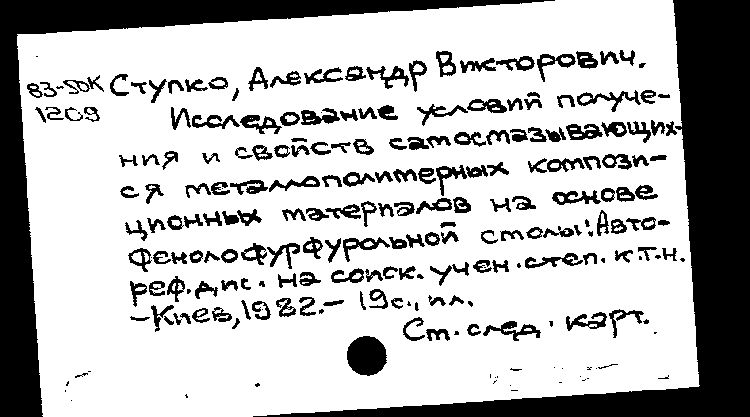 83-50К Ступко, Александр Викторович.
1209 Исследование условий получе-
ния и свойств самосмазывающих-
ся металлополимерных компози-
ционных материалов на основе
фенолофурфурольной смолы: Авто-
реф. дис. на соиск. учен. степ. к.т.н.
– Киев, 1982. – 19 с., ил.
См. след. карт.